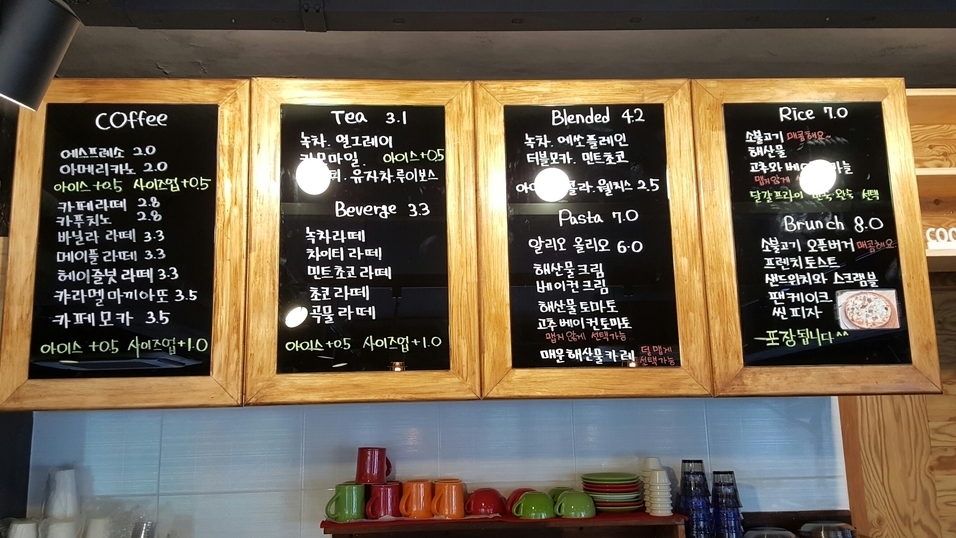 COffee
에스프레소 2.0
아메리카노 2.0
아이스 +0.5 사이즈업 +0.5
카페라떼 2.8
카푸치노 2.8
바닐라 라떼 3.3
메이플 라떼 3.3
헤이즐넛 라떼 3.3
캬라멜 마끼아또 3.5
카페 모카 3.5
아이스 +0.5 사이즈업 +1.0
Tea 3.1
녹차. 얼그레이
아이스 +0.5
유자차. 루이보스
Beverge 3.3
녹차라떼
차이티 라떼
민트쵸코 라떼
쵸코 라떼
곡물 라떼
아이스 +0.5 사이즈업 +1.0
Blended 4.2
녹차. 에소플레인
터블모카. 민트쵸코
2.5
Pasta 7.0
알리오 올리오 6.0
해산물크림
베이컨크림
해산물토마토
고추베이컨토마토
맵지않게 선택가능
매운해산물카레 덜맵게
선택가능
Rice 7.0
소불고기 매콤해요~
해산물
고추와
맵지않게
달걀프라이 완숙 선택
Brunch 8.0
소불고기 오픈버거 매콤해요~
프렌치토스트
샌드위치와 스크램블
팬케이크
씬피자
포장됩니다^^
COO